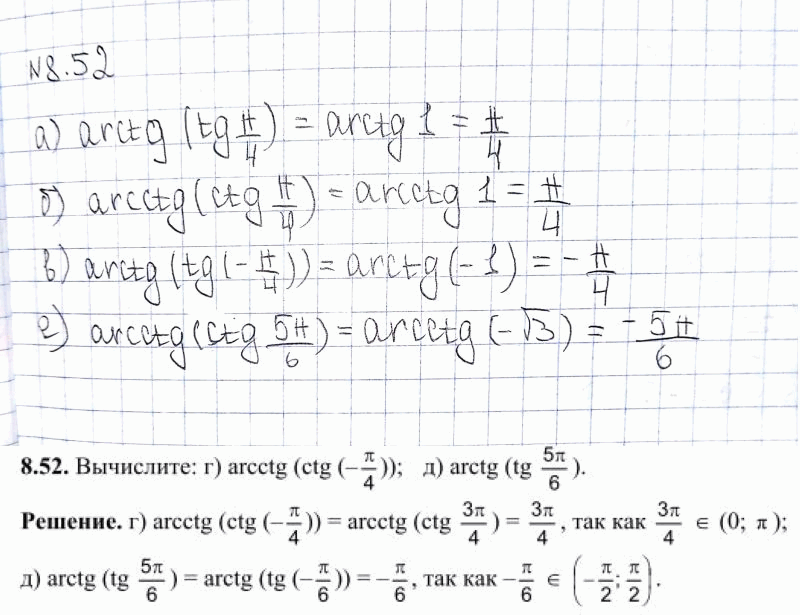 №8.52
а) arctg (tg π/4) = arctg 1 = π/4
б) arcctg(ctg π/4) = arcctg 1 = π/4
в) arctg(tg(-π/4)) = arctg(-1) = -π/4
е) arcctg(ctg 5π/6) = arcctg (-√3) = -5π/6
8.52. Вычислите: г) arcctg (ctg (−π/4)); д) arctg (tg 5π/6).
Решение. г) arcctg (ctg (−π/4)) = arcctg (ctg 3π/4) = 3π/4, так как 3π/4 ∈ (0; π);
д) arctg (tg 5π/6) = arctg (tg (−π/6)) = −π/6, так как −π/6 ∈ (−π/2; π/2).